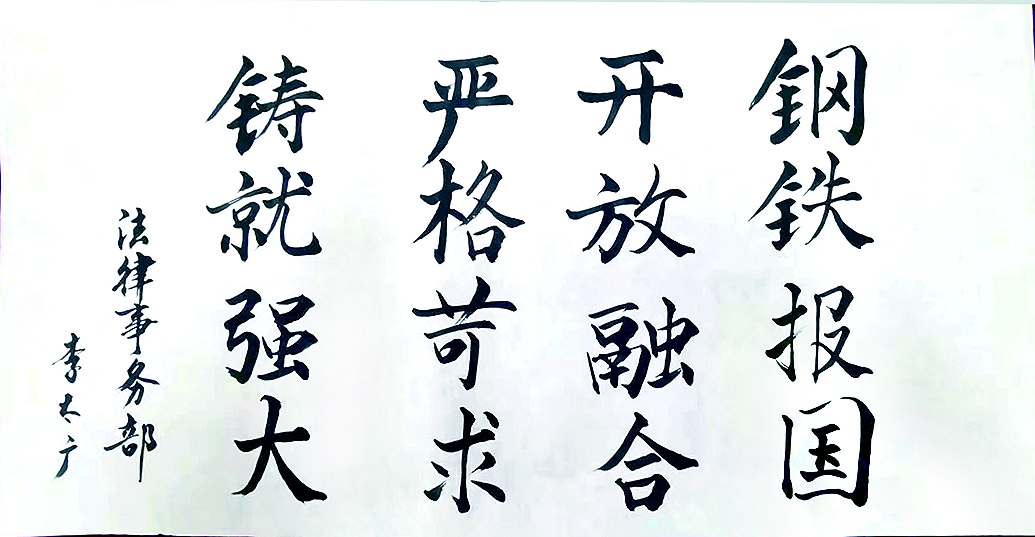 钢铁报国
开放融合
严格苛求
铸就强大
法律事务部
李太广